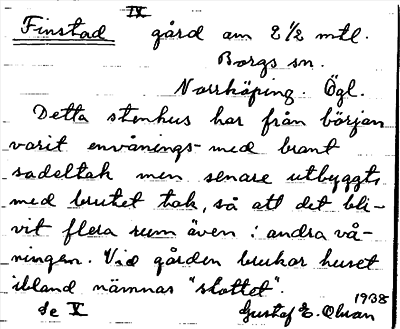 IV
Finstad gård om 2 1/2 mtl.
Borgs sn.
Norrköping. Ögl.
Detta stenhus har från början
varit envånings- med brant
sadeltak men senare utbyggt,
med brutet tak, så att det bli-
vit flera rum även i andra vå-
ningen. Vid gården brukar huset
ibland nämnas "slottet".
1938
se V Gustaf E. Olson